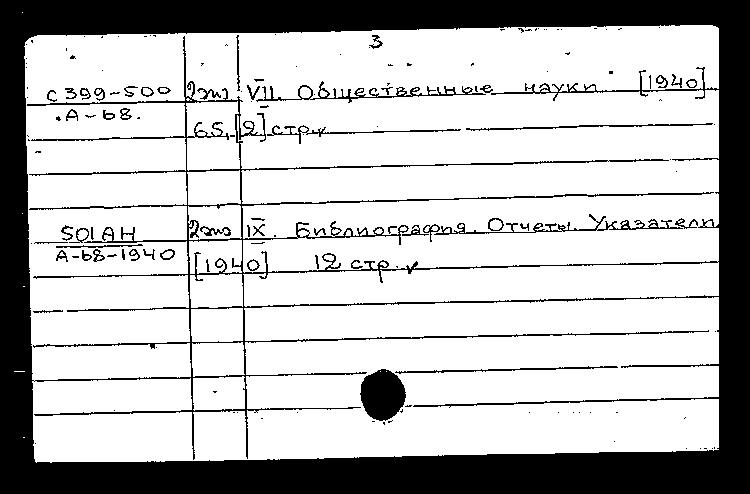 3
С 399-500 2экз VII. Общественные науки [1940]
А-68. 65, [2] стр.
501АН 2экз IX. Библиография. Отчеты. Указатели.
А-68-1940 [1940] 12 стр.